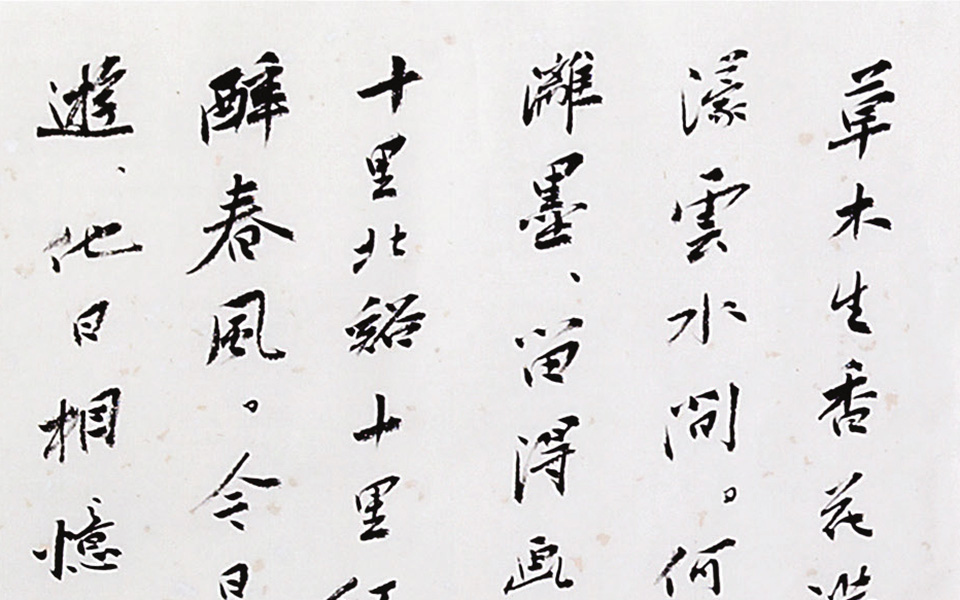 草木生香花
濛雲水間。何
灕墨、留得画
十里北谿十里
醉春風。今日
遊、他日相憶